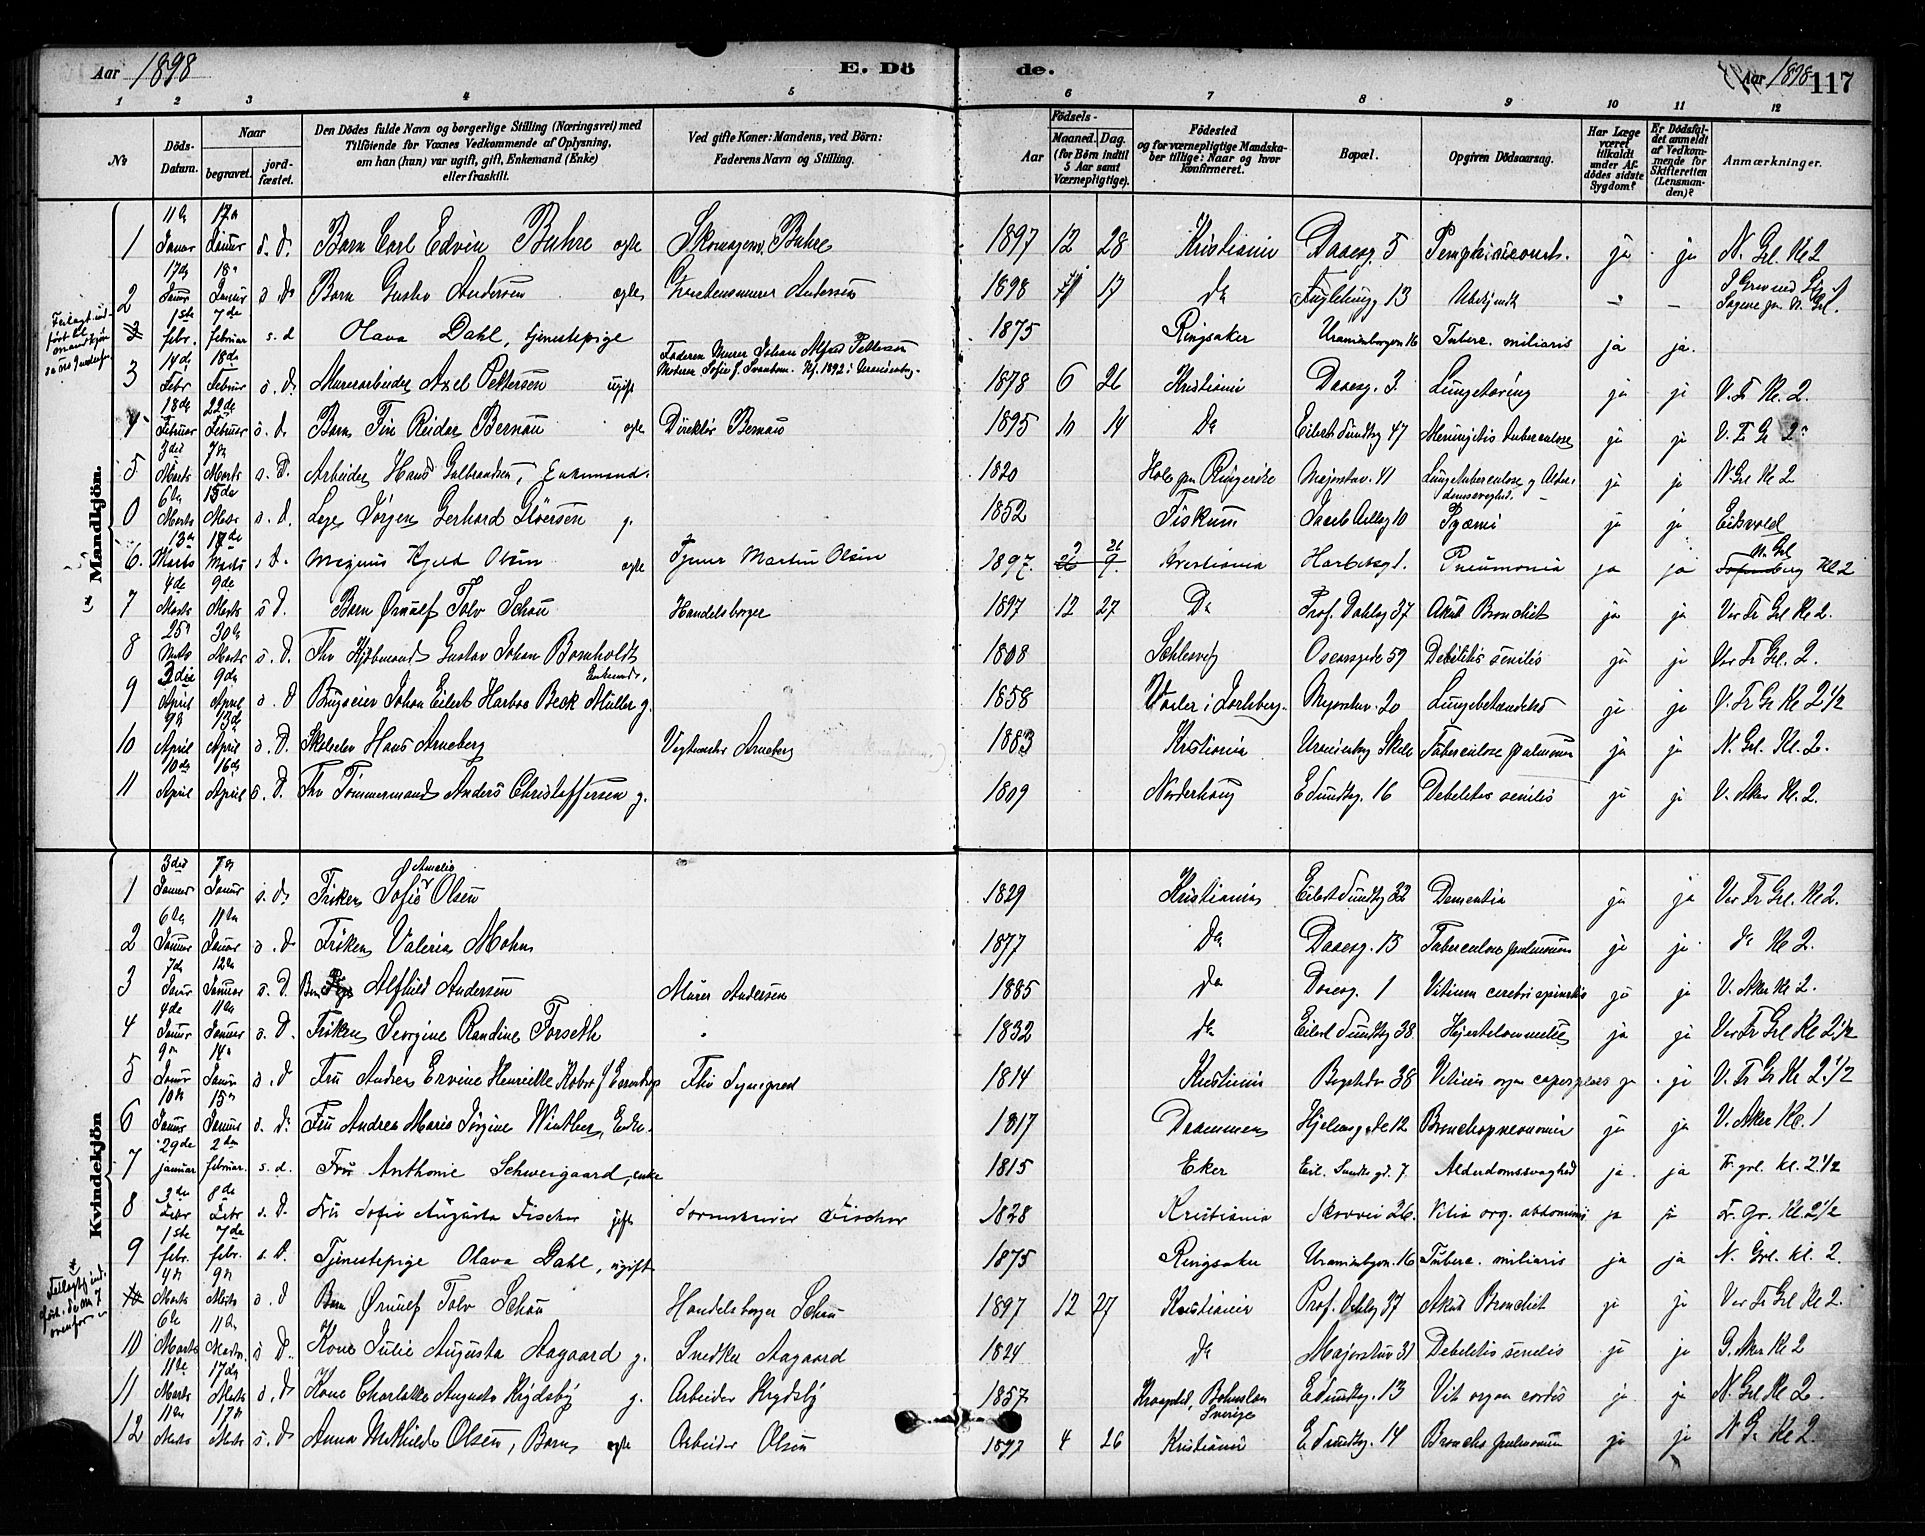 Aar 1898
E. Dö
de.
Aar 1898
117
1 2 3 4 5 6 7 8 9 10 11 12
No
Döds-Datum.
Naar
begravet.
jord-fæstet.
Den Dödes fulde Navn og borgerlige Stilling (Næringsvei) med
Tilföiende for Voxnes Vedkommende af Oplysning,
om han (hun) var ugift, gift, Enkemand (Enke)
eller fraskilt.
Ved gifte Koner: Mandens, ved Börn:
Faderens Navn og Stilling.
Födsels-
Aar
Maaned. Dag.
(for Börn indtil
5 Aar samt
Værnepligtige).
Födested
og for værnepligtige Mandska-
ber tillige: Naar og hvor
konfirmeret.
Bopæl.
Opgiven Dödsaarsag.
Har Læge
været
tilkaldt
under Af-
dödes sidste
Sygdom?
Er Dödsfal-
det anmeldt
af Vedkom-
mende for
Skifteretten
(Lensman-
den)?
Anmærkninger.
Mandkjön.
1 11te Januar 17de Januar s. D. Barn Carl Edvin Buhre ægte Skomagerm. Buhre 1897 12 28 Kristiania Daaesg. 5 ja ja N. Grl. Kl 2
2 17de Januar 18de Januar s Ds Barn Gustav Andersen ægte Andersen 1898 17 Do Fuglehaugg 13 — —
3 1ste febr. 7de februar s. d Olava Dahl, tjenestepige 1875 Ringsaker Uranienborgvn 16 Tuberc. miliaris ja ja.
3 14de Febr 18de Februar s. D. Murerarbeider Axel Pettersen ugift Faderen Murer Johan Alfred Pettersen
Moderen Sofie f. Svendsen. Kf. 1892 i Uranienborg. 1878 6 26 Kristiania Daaesg. 3. Lungetæring ja ja V. Fr Kl. 2.
4 18de Februar 22de Februar s. D. Barn Fin Reidar Bernau ægte Direktör Bernau 1895 10 14 Do Eilert Sundtsg 47 Meningitis tuberculose ja ja V. F. Gr 2
5 3die Marts 7de Marts s. D. Arbeider Hans Gulbrandsen, Enkemand. 1820 Hole pr Ringerike Majorstuv. 41 Lungetuberculose og Alder-
domssvaghed. ja ja N Grl Kl 2
0 6te Marts 15de Marts s. D. Læge Jörgen Gerhard Glöersen g. 1852 Fiskum Jacob Aallsg 10 Pyæmi ja ja Eidsvold
6. 13de Marts 17de Marts s. D. Magnus Kjeld Olsen ægte Martin Olsen 1897. 9 26 Kristiania Harbitzsg 1. Pneumonia ja ja N. Grl Kl 2
7 4de Marts 9de Marts s D. Barn Örnulf Tolv Schou Handelsborger 1897 12 27 Do Prof. Dahlsg 37 Akut Bronchit ja ja Vor Fr Grl Kl 2.
8 25de Marts 30te Marts s. D. Fhv Kjöbmand Gustav Johan Bomholdt
Enkemand, 1808 Schlesvig Oscarsgade 59 Debilitas senilis ja ja Vor Fr Grl. 2.
9 3die April 9de April s. D Brugseier Johan Eilert Harboe Beck Müller g. 1858 Majorstuv. 20 Lungebetændelse ja ja V. Fr Gr Kl 2 1/2
10 9de April 13de April s. D. Skoleelev Hans Arneberg Arneberg 1883 Kristiania Uranienborg Skole Tuberculose pulmonum ja ja N. Grl. Kl. 2.
11 10de April 16de April s. D. Fhv Tömmermand Anders Christoffersen g. 1809 Norderhoug E Sundtsg. 16 Debilitas senilis ja ja V. Aker Kl. 2.
Kvindekjön
1 3die Januar 7de Januar s. D. Fröken Sofie Amalie Olsen 1829 Kristiania Eilert Sundtsg 32 Dementia ja ja Vor Fr Grl. Kl 2.
2 6te Januar 11te Januar s. D Fröken Valeria Mohn 1877 Do Daaesg. 13 Tuberculose pulmonum ja ja do Kl 2.
3 7de Januar 12te Januar s. D. Alfhild Andersen Murer Andersen 1885 Do Daaesg. 1 Vitium cerebri spinalis ja ja V. Aker Kl 2.
4 4de Januar 11te Januar s. D. Fröken Georgine Randine Forseth 1832 Do Eilert Sundtsg 38. ja ja Vor Fr Grl Kl 2 1/2
5 9de Januar 14de Januar s. D Fru Andrea Ervine Henriette Kobro f. 1814 Kristiania Bogstadv 38 ja ja V. Fr Gr Kl 2. 1/2
6 10de Januar 15de Januar s. D. Fru Andrea Marie Jörgine Winther, Enke. 1817 Drammen Hjelmsgade 12 Bronchopneumonia ja ja V. Aker Kl. 1
7 29de januar 2den februar. s. d. Fru Anthonie Schweigaard, enke 1815 Eker Eil. Sundts gd. 7 Alderdomssvaghed ja ja Fr. grl. kl. 2 1/2
8 3de Febr 8de Febr s. D. Fru Sofie Augusta Fischer gift Fischer 1828 Kristiania Skovvei 26. Vitia org. abdominis ja ja Fr. Gr. Kl. 2 1/2
9 1ste febr. 7de febr. s. D. Tjenestepige Olava Dahl, ugift 1875 Ringsaker Uranienborgvn. 16 Tuberc. miliaris ja ja N. Grl. kl. 2
10 4de Marts 9de Marts s. D Barn Örnulf Tolv Schou Handelsborger Schou 1897 12 27 Kristiania Prof. Dahlsg 37 Akut Bronchit ja ja Vor Fr Grl Kl 2.
10 6te Marts 11te Marts s D. Kone Julie Augusta Aagaard g. Snedker Aagaard 1824 Do Majorstuv 31 Debilitas senilis ja ja G. Aker Kl 2
11 11te Marts 17de Marts s. D. Kone Charlotte Augusta Krydsby g. Arbeider Krydsby 1857 Bohuslen
Sverige E Sundtsg. 13 Vit organ cordis ja ja N. Grl Kl 2.
12 11te Marts 17de Marts s. D. Anna Mathilde Olsen, Barn ægte Arbeider Olsen 1897 4 26 Kristiania E Sundtsg. 14 ja ja N Gr Kl 2.